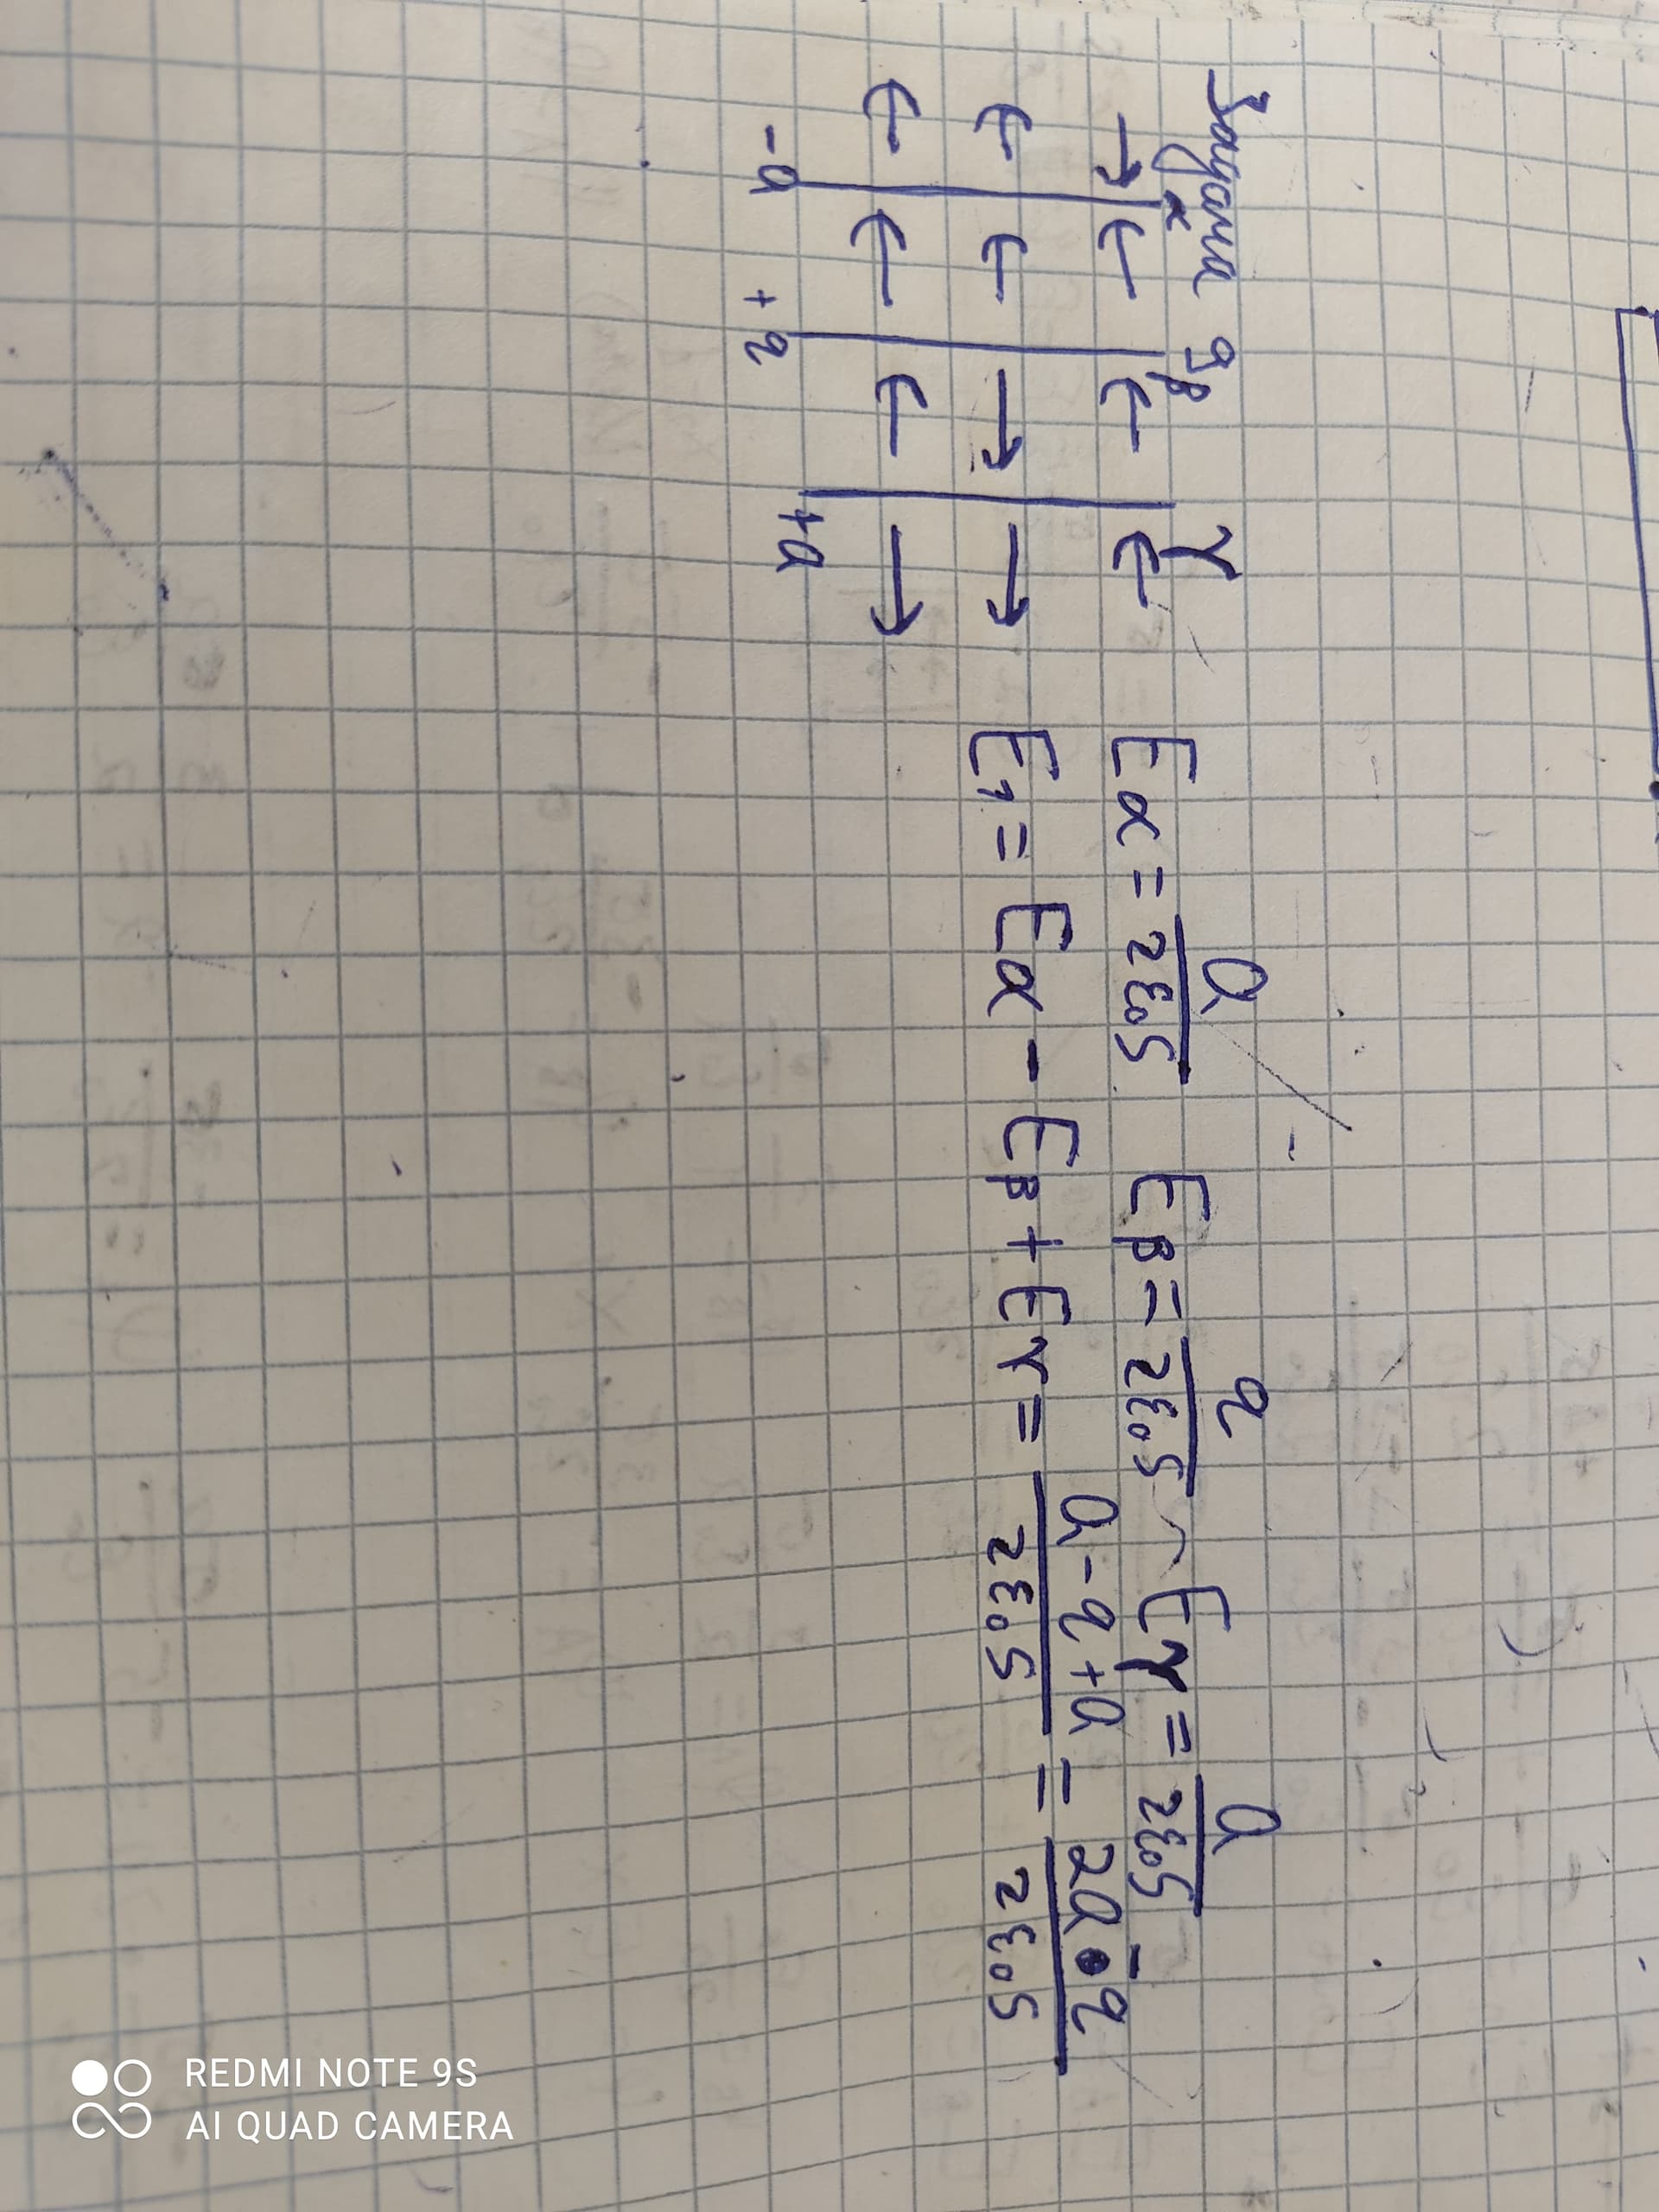 Задача 9
α β γ
-Q +q +Q
Eα = Q/2ε₀S Eβ = q/2ε₀S Eγ = Q/2ε₀S
E₁ = Eα - Eβ + Eγ = Q-q+Q/2ε₀S = 2Q-q/2ε₀S
REDMI NOTE 9S
AI QUAD CAMERA